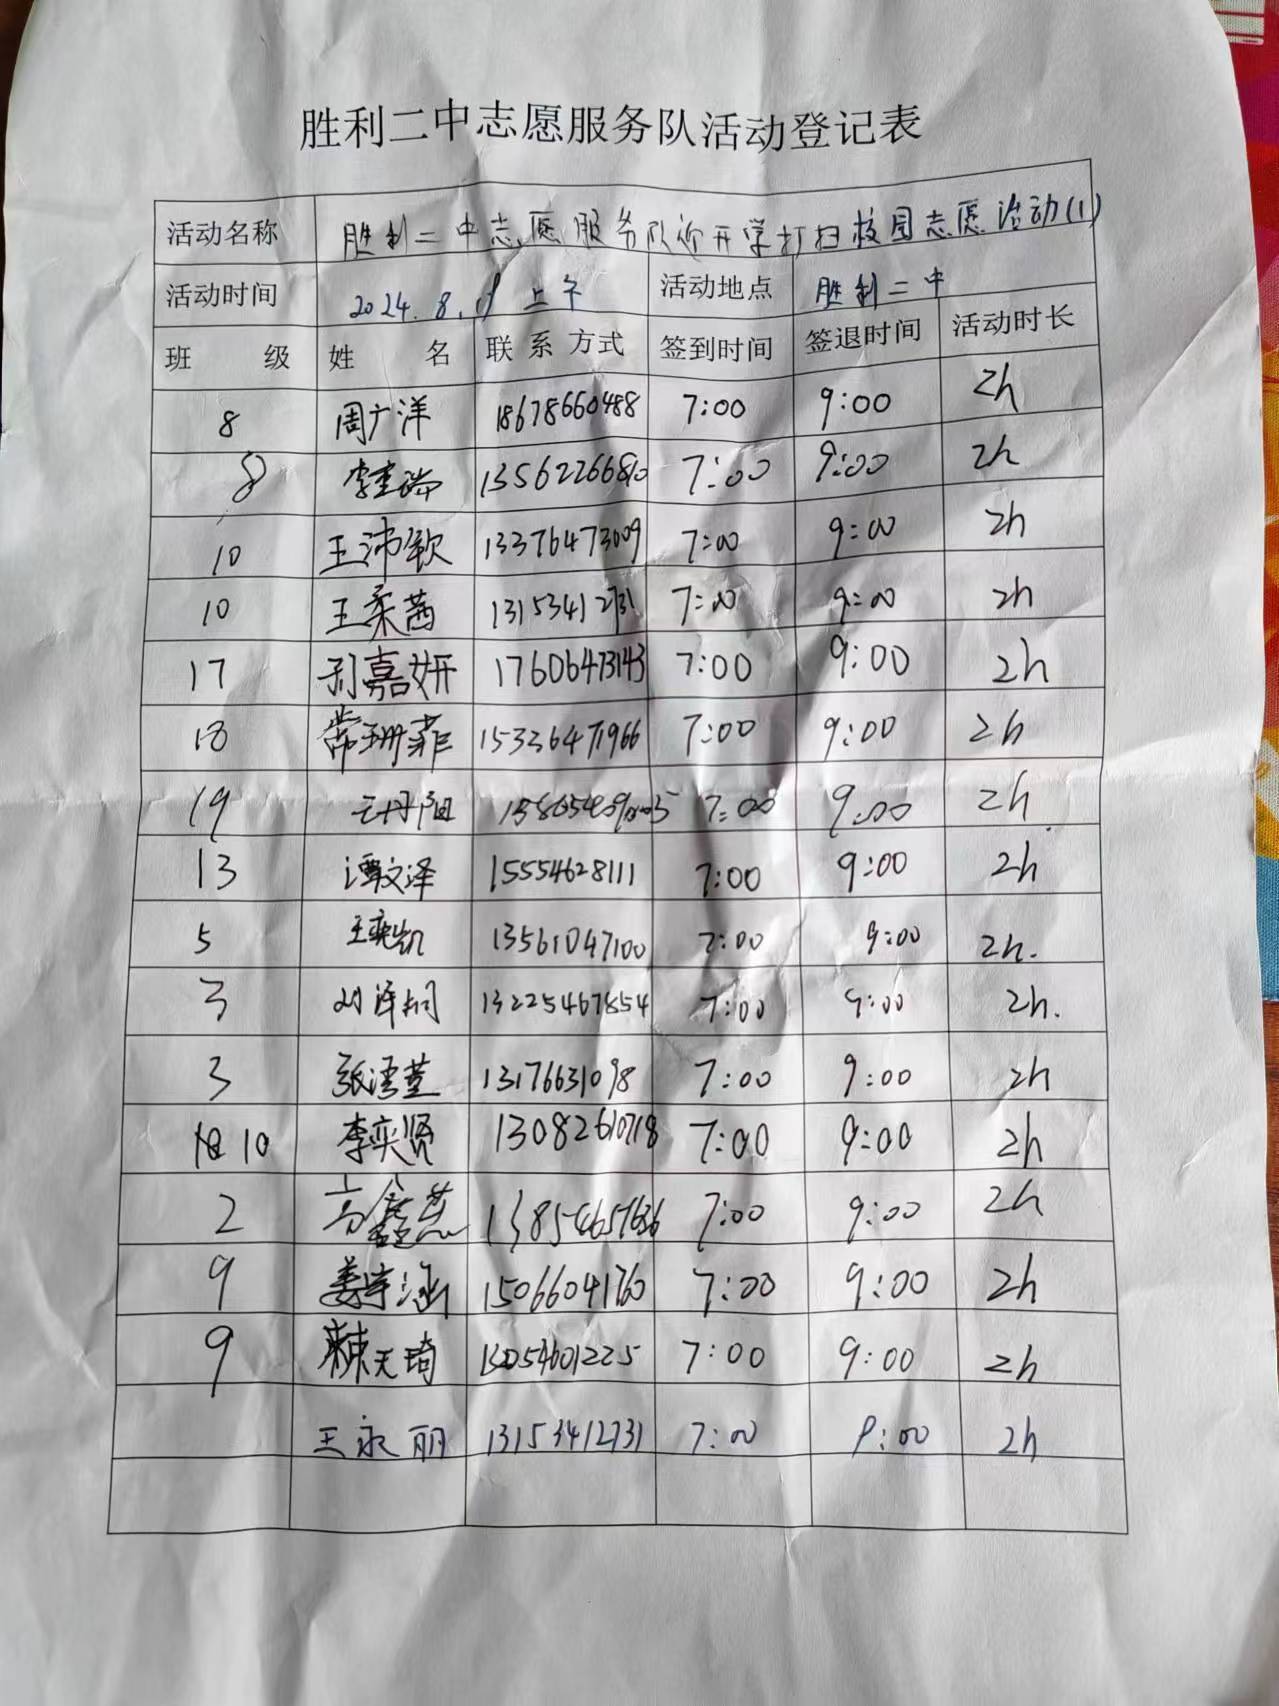 胜利二中志愿服务队活动登记表
活动名称 胜利二中志愿服务队迎开学打扫校园志愿活动(1)
活动时间 2024.8. 上午 活动地点 胜利二中
班 级 姓 名 联系方式 签到时间 签退时间 活动时长
8 周广洋 18678660488 7:00 9:00 2h
8 7:00 9:00 2h
10 王沛钦 13376473009 7:00 9:00 2h
10 王柔茜 13153412731 7:00 9:00 2h
17 刘嘉妍 17606473143 7:00 9:00 2h
18 常珊菲 15336471966 7:00 9:00 2h
19 7:00 9:00 2h
13 谭文泽 15554628111 7:00 9:00 2h
5 王奕凯 13561047100 7:00 9:00 2h.
3 刘泽桐 13225467854 7:00 9:00 2h.
3 13176631098 7:00 9:00 2h
10 李奕贤 13082610718 7:00 9:00 2h
2 13854657636 7:00 9:00 2h
9 姜宇涵 15066041760 7:00 9:00 2h
9 天琦 7:00 9:00 2h
王永丽 13153412731 7:00 9:00 2h